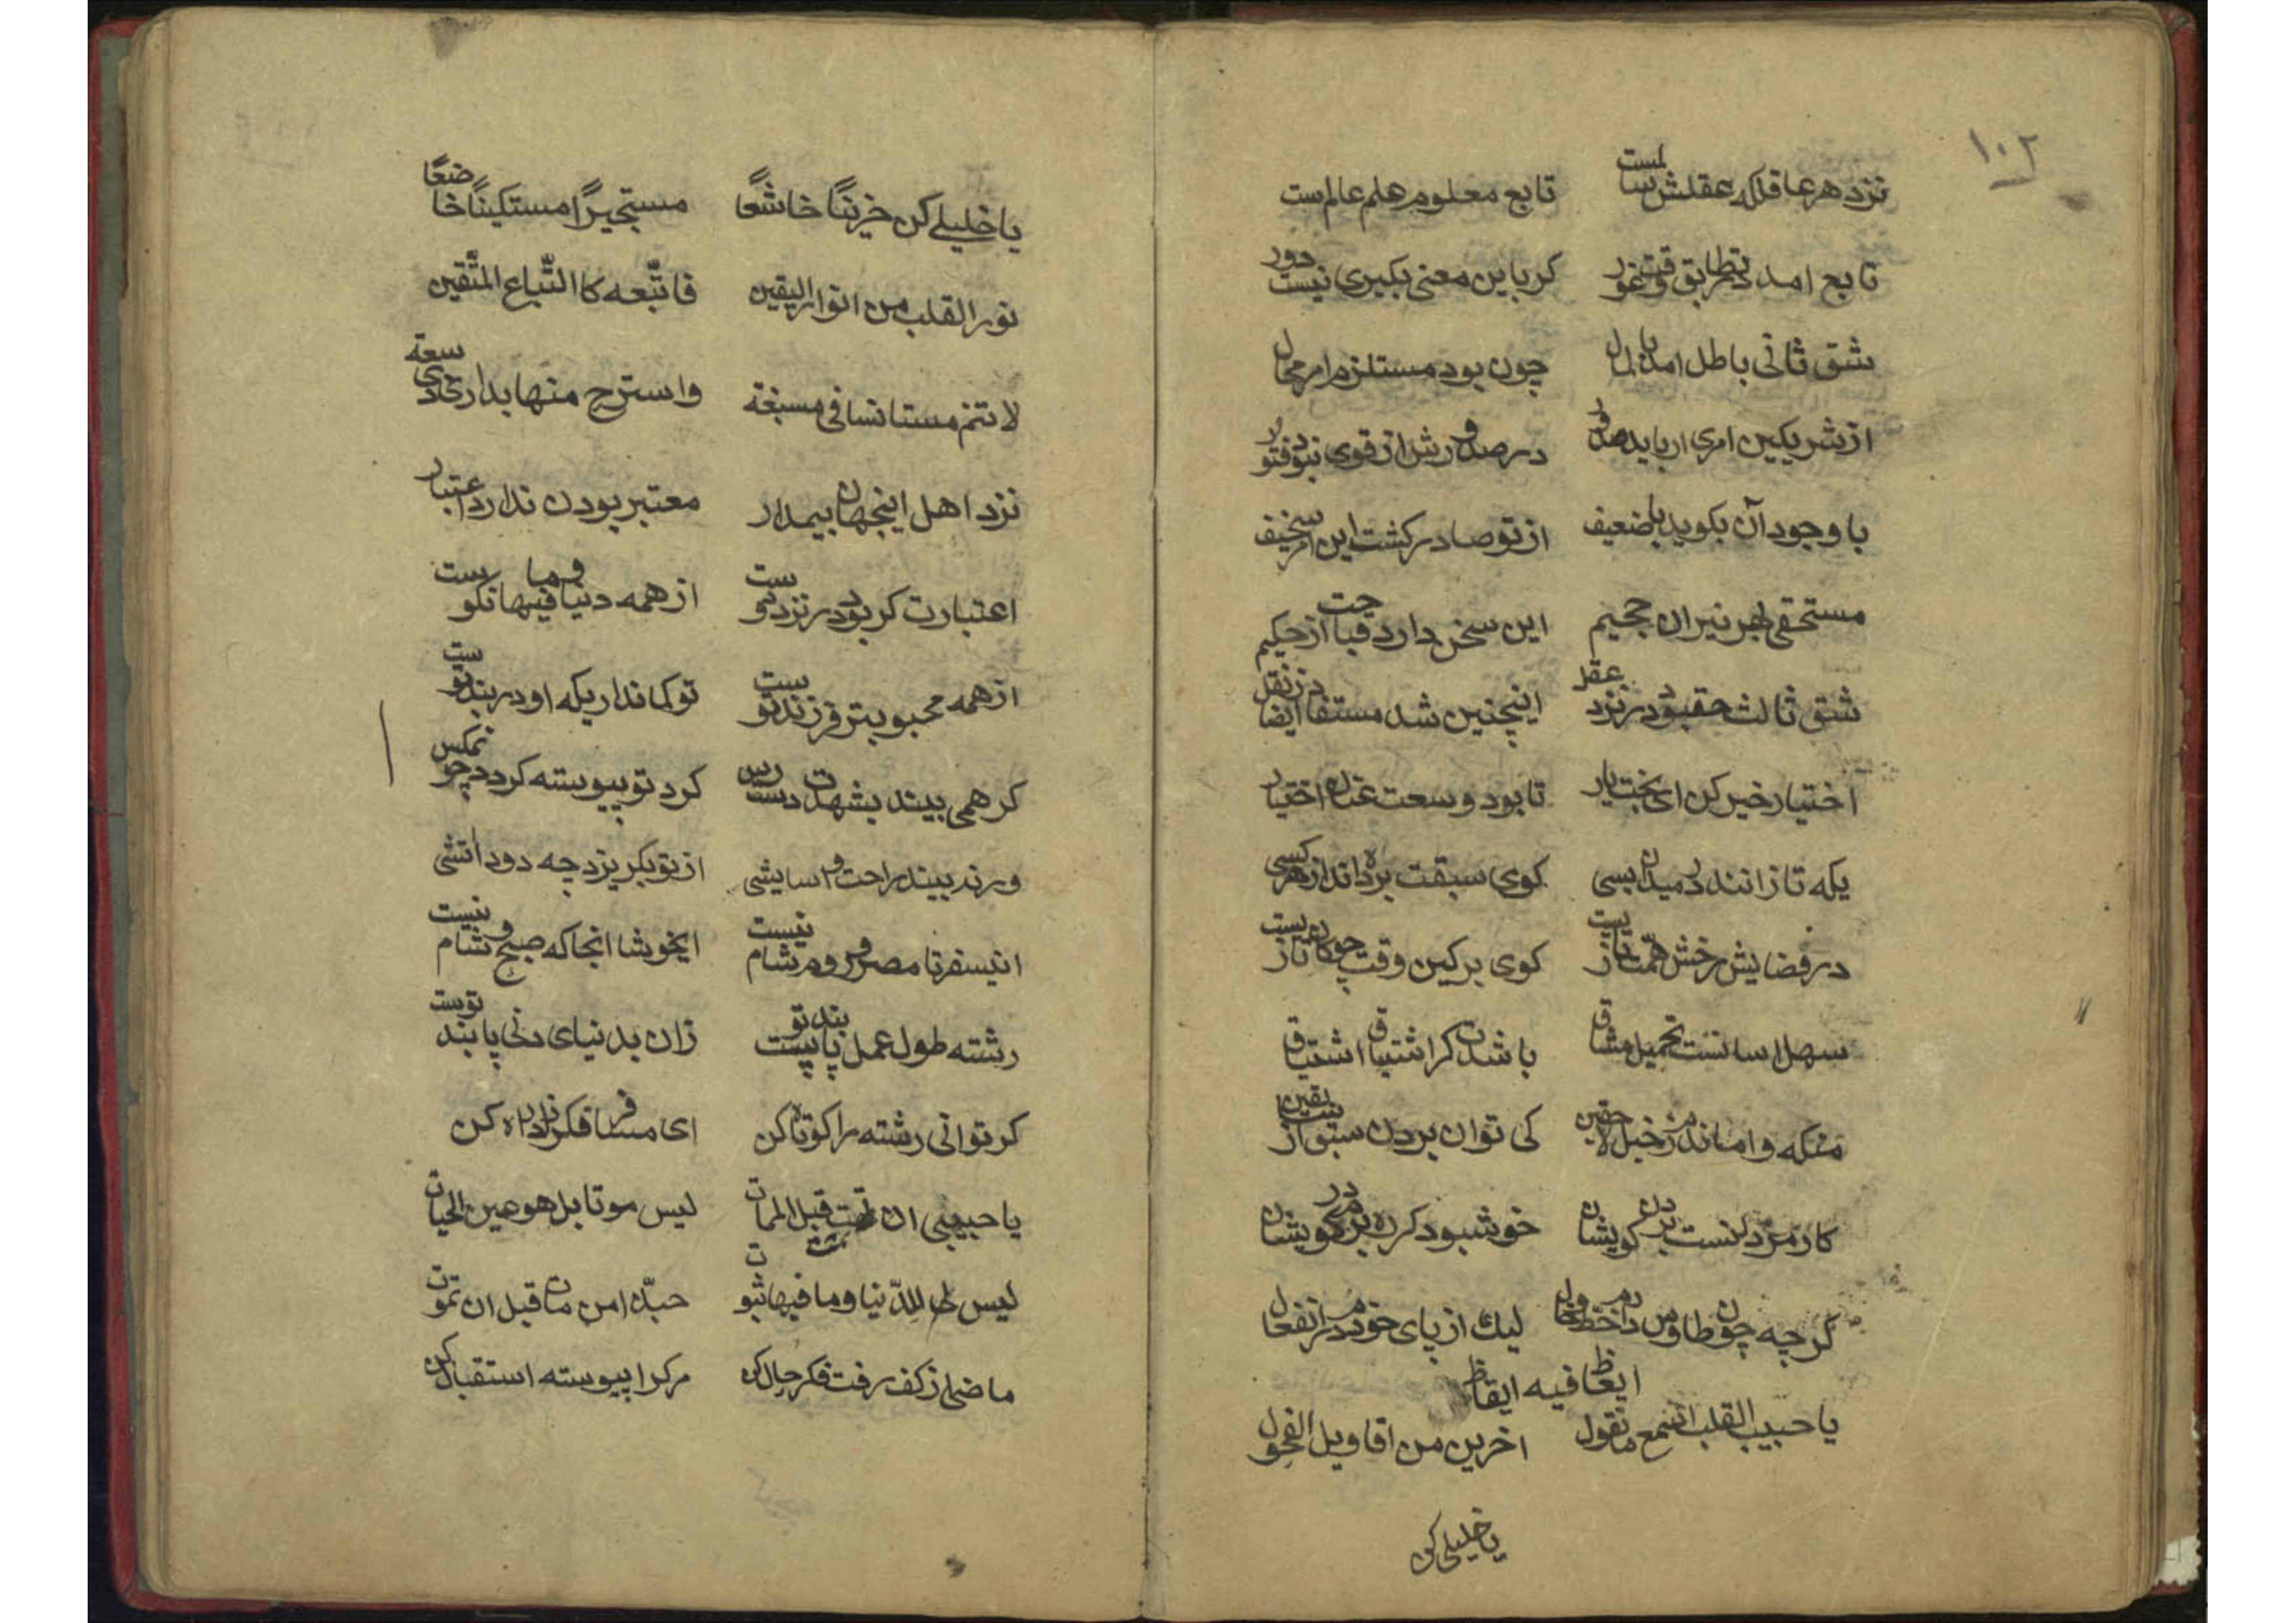 ١٠٢
نزد هر عاقل که عقلش سالمست تابع معلوم علم عالم است
تابع امد در تطابق وقت غور کر باین معنی بکیری نیست دور
شق ثانی باطل امد بی‌نان چون بود مستلزم امر محال
از شریکین امری ار یابد صدور در صدورش از قوی نبود فتور
با وجود آن بکوید با ضعیف از تو صادر کشت این امر سخیف
مستحقی بهر نیران جحیم این سخن دارد قباحت از حکیم
شق ثالث حق بود در نزد عقل اینچنین شد مستفاد ایضا ز نقل
اختیار خیر کن ای بخت یار تا بود وسعت عنان اختیار
یکه تازانند در میدان بسی کوی سبقت برده‌اند از هر کسی
در فضایش رخش همت تازیست کوی برکین وقت چوکان بازیست
سهل و اسانست تحمیل مشاق باشدت کر اشتیاق اشتیاق
منکه وامانده‌ام ز خیل لاحقین کی توان بردن سبق از سابقین
کار مزد نست بردن کویشان خوش بود کر ره برم در کویشان
کر چه چون طاوس در خط و خال لیک از پای خودم در انفعال
ایعاظ فیه ایقاظ
یا حبیب القلب اسمع ما نقول اخرین من اقاویل الفحول
یا خلیلی کن
یا خلیلی کن حزینًا خاشعًا مستجیرًا مستکینًا خاضعًا
نور القلب من انوار الیقین فاتّبعه کالتّباع المتّقین
لا تنم مستانسا فی مسبغة واسترح منها بدار ذی سعة
نزد اهل اینجهان بیمدار معتبر بودن ندارد اعتبار
اعتبارت کر بود در نزد دوست از همه دنیا و ما فیها نکوست
از همه محبوبتر فرزند تست تو کمانداریکه او در بند تست
کر همی بیند بشهدت دست رس کرد تو پیوسته کردد چون مکس
ور نه بیند راحت و اسایشی از تو بکریزد چه دود اتشی
این سفر تا مصر و روم و شام نیست ایخوشا انجا که صبح و شام نیست
رشته طول عمل پابند تو پیست زان بدنیای دنی پابند تویست
کر توانی رشته را کوتاه کن ای مسافر فکر زاد راه کن
یا حبیبی ان تمت قبل الممات لیس موتا بل هو عین الحیات
لیس للدّنیا و ما فیها ثبوت حبّذا من مات قبل ان تموت
ماضی از کف رفت فکر حال کن مرک را پیوسته استقبال کن